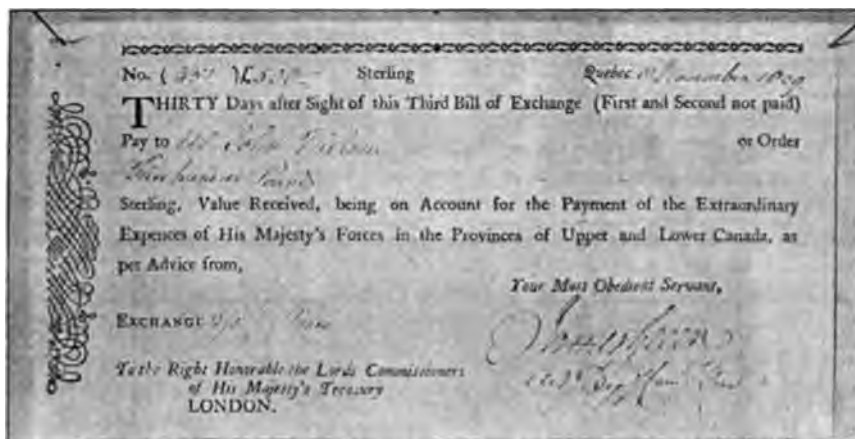 No. ( Sterling Quebec November 1809
THIRTY Days after Sight of this Third Bill of Exchange (First and Second not paid)
Pay to John or Order
Pounds
Sterling, Value Received, being on Account for the Payment of the Extraordinary
Expences of His Majesty's Forces in the Provinces of Upper and Lower Canada, as
per Advice from,
Your Most Obedient Servant,
EXCHANGE
To the Right Honorable the Lords Commissioners
of His Majesty's Treasury
LONDON.